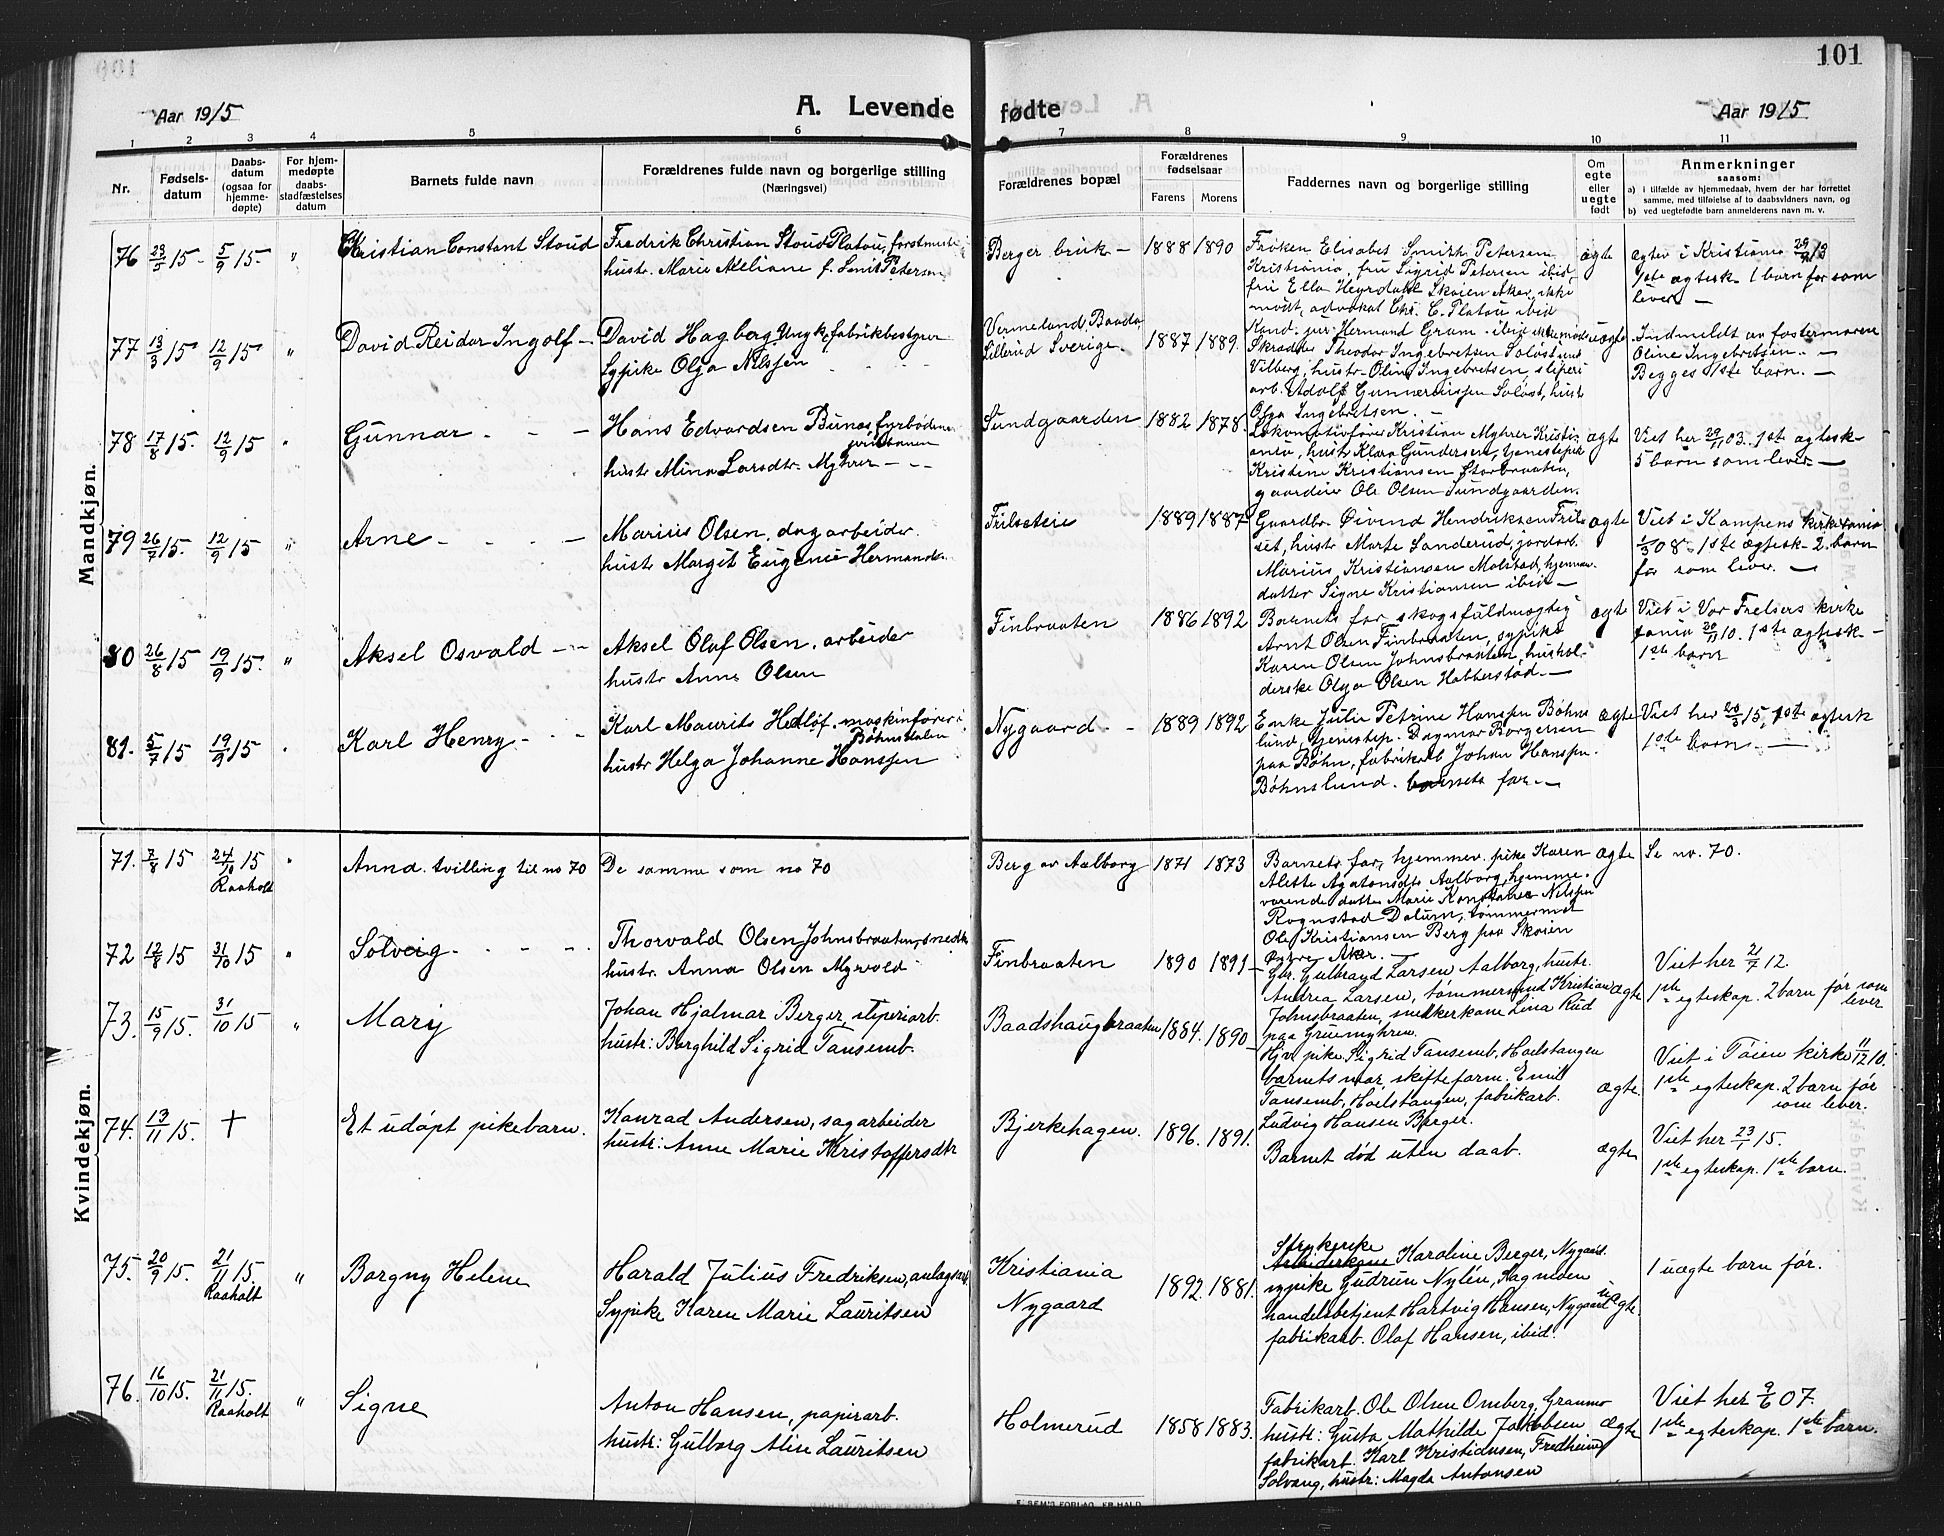 101
Aar 1915
A. Levende fødte
Aar 1915
1 2 3 4 5 6 7 8 9 10 11
Nr.
Fødsels-
datum
Daabs-
datum
(ogsaa for
hjemme-
døpte)
For hjem-
medøpte
daabs-
stadfæstelses
datum
Barnets fulde navn
Forældrenes fulde navn og borgerlige stilling
(Næringsvei)
Forældrenes bopæl
Forældrenes
fødselsaar
Farens Morens
Faddernes navn og borgerlige stilling
Om
egte
eller
uegte
født
Anmerkninger
saasom:
a) i tilfælde av hjemmedaab, hvem der har forrettet
samme, med tilføielse af to daabsvidners navn, og
b) ved uegtefødte barn anmelderens navn m. v.
Mandkjøn.
76 23/5 15 - 5/9 15 - "
Kristian Constant Stoud
Fredrik Christian Stoud Platou, forstmester
hustr. Marie
f. Smit Petersen
Berger bruk - 1888 1890
Frøken Elisabet Smith Petersen
Kristiania, fru Sigrid Petersen ibid
fru Ella Heyrdahl Skøien Aker, ikke
mødt, advokat Chr. C. Platou ibid
Kand. jur. Hermand Gram ibid
ægte
ægtev i Kristiania
1ste ægtesk 1 barn før som
lever -
77 13/3 15 12/9 15 "
David Reidar Ingolf -
David Hagberg
fabrikbestyrer
sypike Olga Nilsen
Vermeland,
Lillerud Sverige. 1887 1889.
Skrædder Theodor Ingebretsen Solost
Vilberg, hustr Oline Ingebretsen, sliperi
arb. Adolf Gunnerius­sen Soløst, hustr
Olga Ingebretsen. -
uægte
Indmeldt av fostermoren
Oline Ingebretsen. -
Begges 1ste barn. -
78 17/8 15. 12/9 15 "
Gunnar - - -
Hans Edvardsen Bunæs fyrbøder
hustr Mina Larsdtr. Myhrer - - -
Sundgaarden 1882 1878.
Lokomotivfører Kristian Myhrer Kristi-
ania, hustr Klara Gundersen, tjenestepike
Kristine Kristiansen Storbraaten,
gaardeier Ole Olsen Sundgaarden.
ægte
Viet her 29/11 03. 1ste ægtesk -
5 barn som lever. -
79 26/7 15. 12/9 15 "
Arne - - - -
Marius Olsen, dagarbeider
hustr Margit Eugenie Hermansdtr
Frilseteie 1889 1887
Gaardbr. Øivind Hendriksen Fril-
set, hustr Marte Sanderud, jordarb.
Marius Kristiansen Molstad, hjemmev.
datter Signe Kristiansen ibid -
ægte
Viet i Kampens kirke
1/3 08. 1ste ægtesk - 2 barn
før som lever. -
80 26/8 15 19/9 15. "
Aksel Osvald - -
Aksel Olaf Olsen, arbeider
hustr Anna Olsen
Finbraaten 1886 1892
Barnets far, skogsfuldmægtig
Arnt Olsen Finbraaten, sypike
Karen Olsen Johnsbraaten, hushol-
derske Olga Olsen Habberstad. -
ægte
Viet i Vor Frelsers kirke
20/11 10. 1ste ægtesk -
1ste barn
81. 5/7 15 19/9 15
Karl Henry - - -
Karl Maurits Hedlöf, maskinfører i
Bøhnsdalen
hustr Helga Johanne Hanssen
Nygaard - - 1889 1892
Enke Julie Petrine Hanssen Bøhns
lund, tjenestep. Dagmar Borgersen
paa Bøhn, fabrikarb Johan Hanssen
Bøhnslund. barnets far -
ægte
Viet her 20/3 15, 1ste ægtesk
1ste barn. -
Kvindekjøn.
71. 7/8 15 24/10 15 "
Raaholt
Anna. tvilling til no 70
De samme som no 70
Berg av Aalborg 1871 1873
Barnets far, hjemmev. pike Karen
Alette Agatonsdtr Aalborg, hjemme-
værende datter Marie Konstanse Nilssen
Rognstad Dalum, tømmermd
Ole Kristiansen Berg paa Skøien
Østre Aker. -
ægte
Se no. 70.
72 12/8 15 31/10 15 "
Solveig - - - -
Thorvald Olsen Johnsbraaten, snedk
hustr. Anna Olsen Myrvold
Finbraaten 1890 1891 -
Gbr. Gulbrand Larsen Aalborg, hustr.
Andrea Larsen, tømmermand Kristian
Johnsbraaten, snedkerkone Lina Rud
paa Gruemyhren.
ægte
Viet her 21/7 12.
1ste egteskap. 2 barn før som
lever
73. 15/9 15. 31/10 15 "
Mary
Johan Hjalmar Berger, sliperiarb.
hustr: Borghild Sigrid Tansemb.
Baadshaugbraaten 1884. 1890 -
Hjv. pike Sigrid Tansemb, Hoelstangen
barnets mor, skifteform. Emil
Tansemb, Hoelstangen, fabrikarb.
Ludvig Hansen Berger.
ægte
Viet i Tøien kirke 11/12 10.
1ste egteskap. 2 barn før
som lever.
74. 13/11 15. †
Et udøpt pikebarn.
Konrad Andersen, sagarbeider
hustr: Anne Marie Kristoffersdtr
Bjerkehagen. 1896. 1891.
Barnet død uten daab.
ægte
Viet her 23/1 15.
1ste egteskap. 1ste barn.
75. 20/9 15. 21/11 15. "
Raaholt
Borgny Helene
Harald Julius Fredriksen, anlægsarb
Sypike Karen Marie Lauritsen
Kristiania
Nygaard
1892. 1881.
Strykerske
Arbeiderkone Karoline Berger, Nygaard.
sypike Gudrun Nylén, Sagmoen
handelsbetjent Hartvig Hansen, Nygaard
fabrikarb. Olaf Hansen, ibid.
uægte.
1 uægte barn før.
76. 16/10 15. 21/11 15. "
Raaholt
Signe
Anton Hansen, papirarb.
hustr: Gulborg Aline Lauritsen
Holmerud 1858 1883.
Fabrikarb. Ole Olsen Omberg, Granmo
hustr: Gusta Mathilde Jakobsen
fabrikarb. Karl Kristiansen, Fredheim
Solvang, hustr: Magda Antonsen
ægte
Viet her 9/6 07.
1ste egteskap. 1ste barn.
E. SEM'S FORLAG, FR.HALD